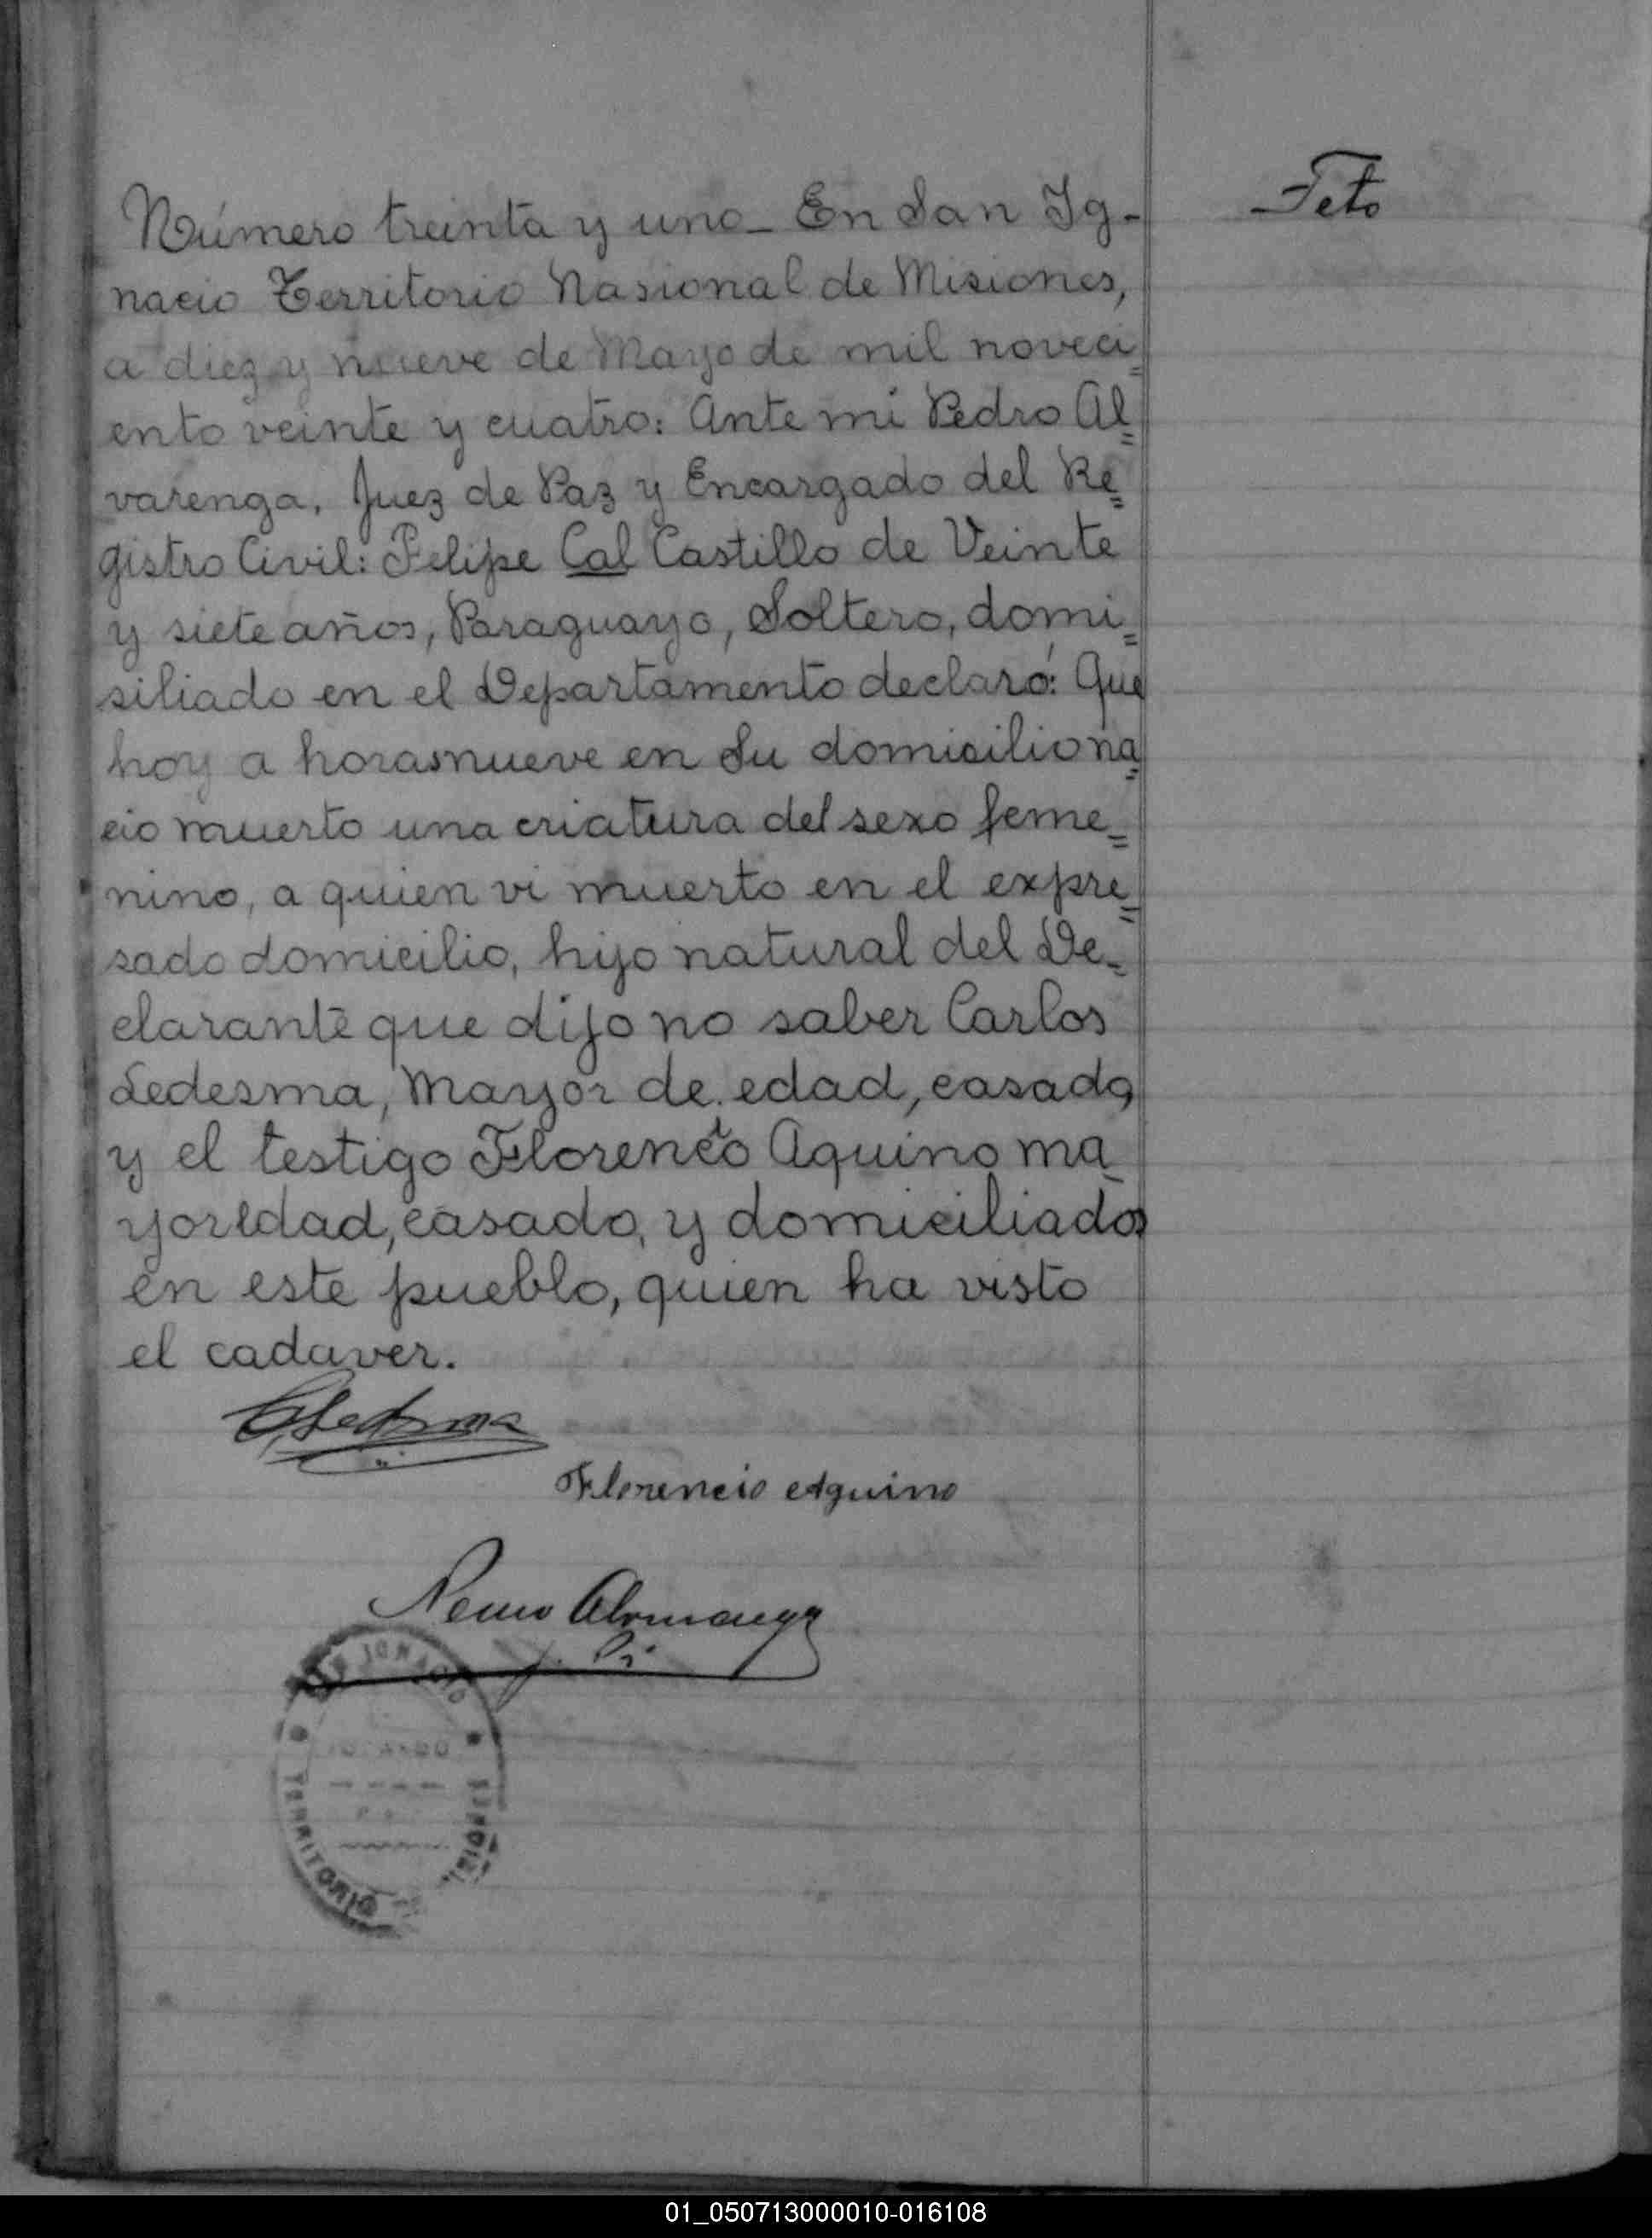 Número treinta y uno_ En San Ig-
Feto
nacio Territorio Nasional de Misiones,
a diez y nueve de Mayo de mil noveci=
ento veinte y cuatro: Ante mi Pedro Al=
varenga, Juez de Paz y Encargado del Re=
gistro Civil: Felipe Cal Castillo de Veinte
y siete años, Paraguayo, Soltero, domi=
siliado en el Departamento declaró: Que
hoy a horas nueve en Su domicilio na=
cio muerto una criatura del sexo feme=
nino, a quien vi muerto en el expre=
sado domicilio, hijo natural del De=
clarante que dijo no saber Carlos
Ledesma, Mayor de edad, casado,
y el testigo Florencio Aquino ma-
yor edad, casado, y domiciliados
en este pueblo, quien ha visto
el cadaver.
CLedesma
Florencio Aquino
Alvarenga
SAN IGNACIO
TERRITORIO
MISIONES
01_050713000010-016108